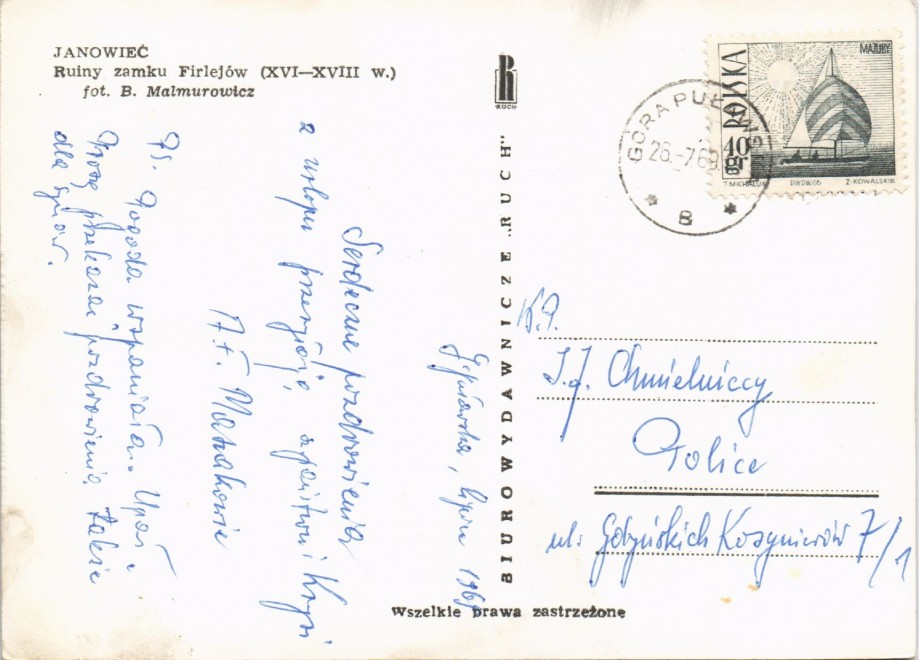 JANOWIEC
Ruiny zamku Firlejów (XVI—XVIII w.)
fot. B. Malmurowicz
RUCH
BIURO WYDAWNICZE „RUCH"
POLSKA
MAZURY
40 gr
T. MICHALUK
PWPW 66
Z. KOWALSKI
GÓRA PUŁAWSKA
26.-7.69
B
lipiec 1969
Serdeczne pozdrowienia
z urlopu przesyłają
Ps. Pogoda wspaniała. Upał.
Proszę przekazać pozdrowienia także
dla synów.
J. J. Chmielniccy
Police
ul. Gdyńskich Kosynierów 7/1
Wszelkie prawa zastrzeżone